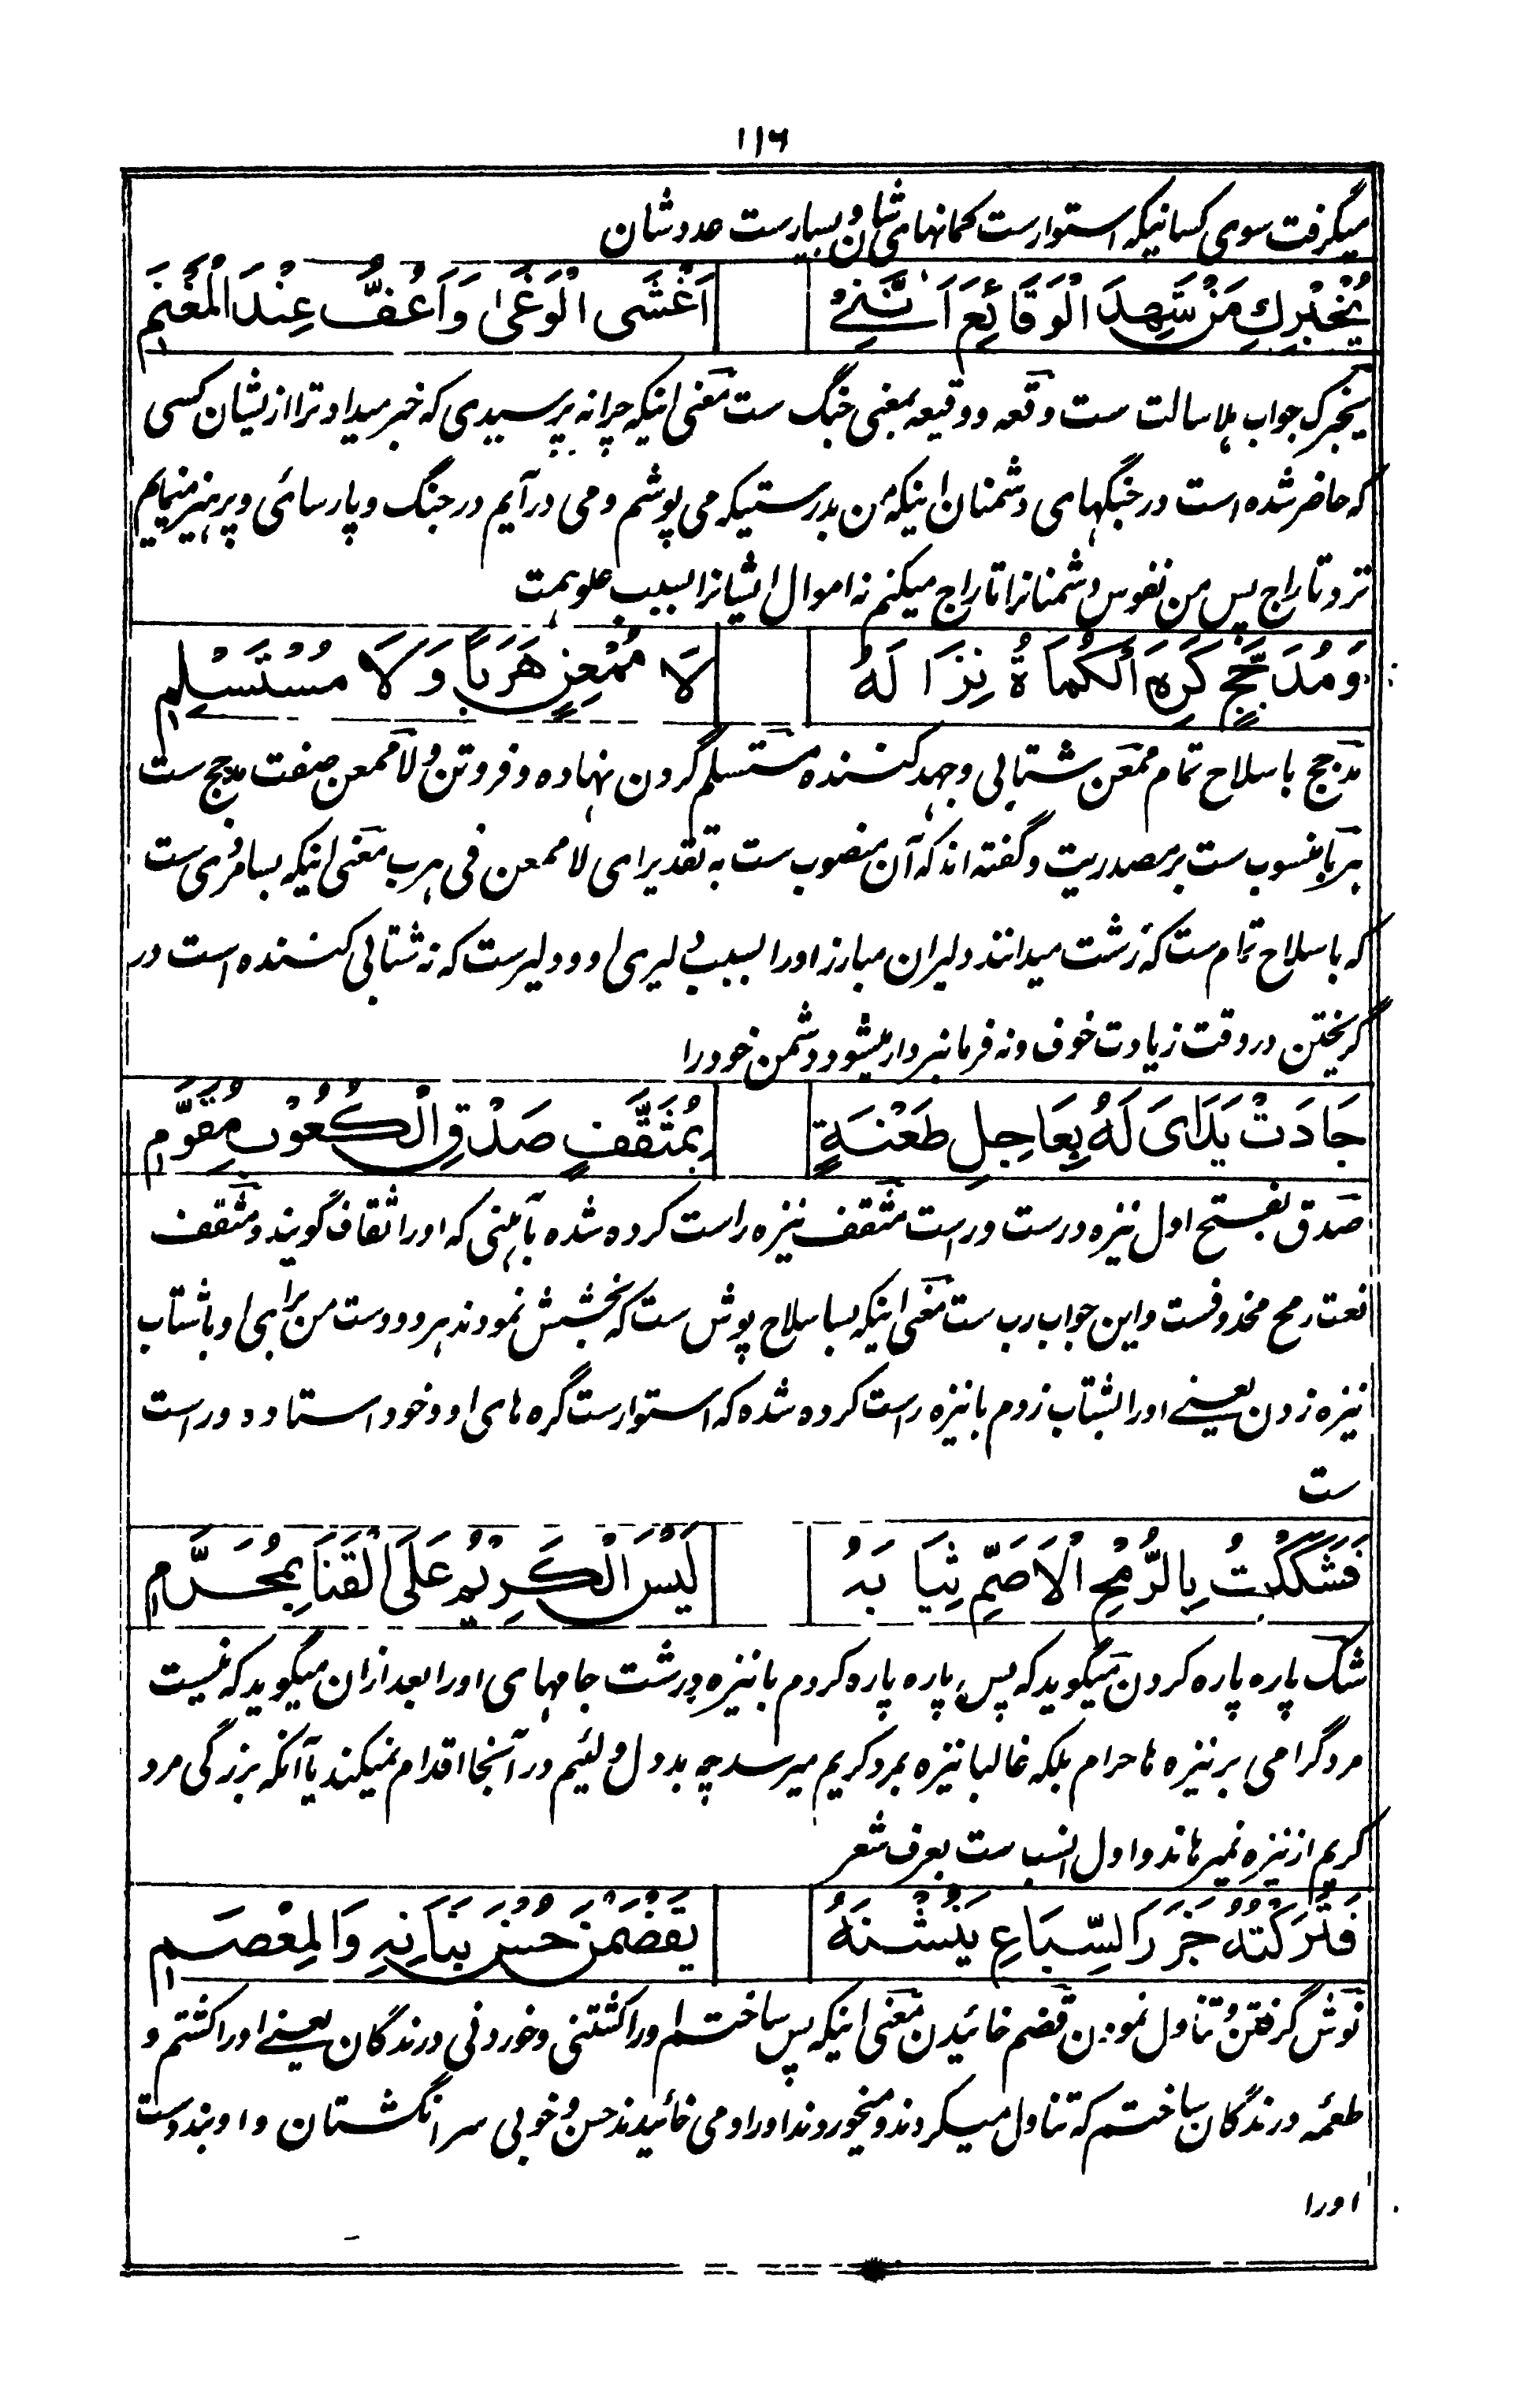 ۱۱۶
میگرفت سوی کسانیکه استوارست کمانهای شان و بسیارست عدد شان
يُخْبِرْكِ مَنْ شَهِدَ الْوَقَائِعَ اَنَّنِيْ اَغْشَى الْوَغٰى وَاَعُفُّ عِنْدَ الْمَغْنَمِ
یخبرک جواب هلا سالت ست وقعه ووقیعه بمعنی جنگ ست معنی اینکه چرا نه پرسیدی که خبر میداد ترا ازیشان کسی
که حاضر شده است در جنگهای دشمنان اینکه من بدرستیکه می پوشم و می درآیم در جنگ و پارسائی و پرهیز مینمایم
نزد تاراج پس من نفوس دشمنانرا تاراج میکنم نه اموال ایشانرا بسبب علو همت
وَمُدَجَّجٍ كَرِهَ الْكُمَاةُ نِزَالَهُ لَا مُمْعِنٍ هَرَبًا وَلَا مُسْتَسْلِمِ
مدجج با سلاح تمام ممعن شتابی وجهد کننده مستسلم گردن نهاده و فروتن ولا ممعن صفت مدجج ست
هربا منسوب ست بر مصدریت و گفته اند که آن منصوب ست به تقدیر ای لا ممعن فی هرب معنی اینکه بسا مردی ست
که با سلاح تمام ست که زشت میدانند دلیران مبارز اورا بسبب دلیری او و دلیرست که نه شتابی کننده است در
گریختن در وقت زیادت خوف و نه فرمانبردار میشود دشمن خود را
جَادَتْ يَدَاىَ لَهُ بِعَاجِلِ طَعْنَةٍ بِمُثَقَّفٍ صَدْقِ الْكُعُوْبِ مُقَوَّمِ
صدق بفتح اول نیزه درست وراست مثقف نیزه راست کرده شده بآهنی که اورا ثقاف گویند و مثقف
نعت رمح محذوفست واین جواب رب ست معنی اینکه بسا سلاح پوش ست که بخشش نمودند هر دو دست من برای او با شتاب
نیزه زدن یعنے اورا بشتاب زدم با نیزه راست کرده شده که استوارست گره های او و خود استاده وراست
ست
فَشَكَكْتُ بِالرُّمْحِ الْاَصَمِّ ثِيَابَهُ لَيْسَ الْكَرِيْمُ عَلَى الْقَنَا بِمُحَرَّمِ
شک پاره پاره کردن میگوید که پس پاره پاره کردم با نیزه درشت جامهای اورا بعد ازان میگوید که نیست
مرد گرامی بر نیزه ها حرام بلکه غالبا نیزه بمرد کریم میرسد چه بددل و لئیم در آنجا اقدام نمیکند یا آنکه بزرگی مرد
کریم از نیزه نمیرهاند و اول انسب ست بعرف شعر
فَتَرَكْتُهُ جَزَرَ السِّبَاعِ يَنُشْنَهُ يَقْضَمْنَ حُسْنَ بَنَانِهِ وَالْمِعْصَمِ
نوش گرفتن و تناول نمودن قضم خائیدن معنی اینکه پس ساختم اورا کشتنی و خوردنی درندگان یعنے اورا کشتم و
طعمه درندگان ساختم که تناول میکردند و میخوردند اورا و می خائیدند حسن و خوبی سر انگشتان و او بند دست
اورا